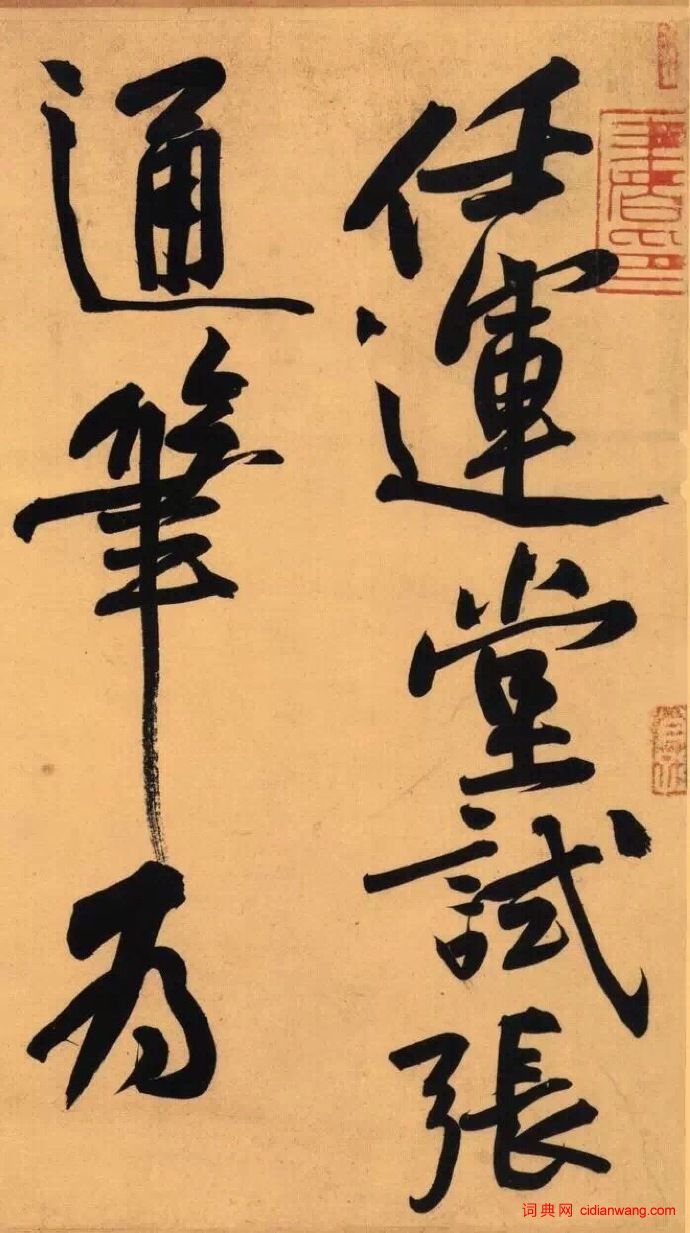 任運堂試張
通筆為
词典网 cidianwang.com